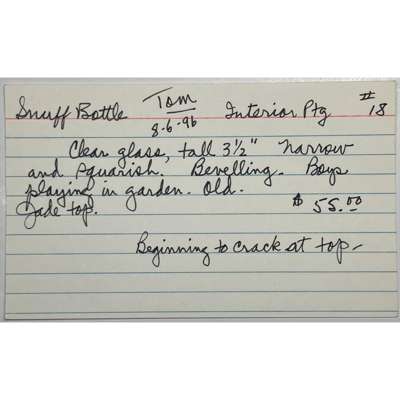 Snuff Bottle Tom Interior Ptg #18
8-6-96
Clear glass, tall 3½" Narrow
and squarish. Bevelling. Boys
playing in garden. Old.
Jade top. $55.00
Beginning to crack at top-